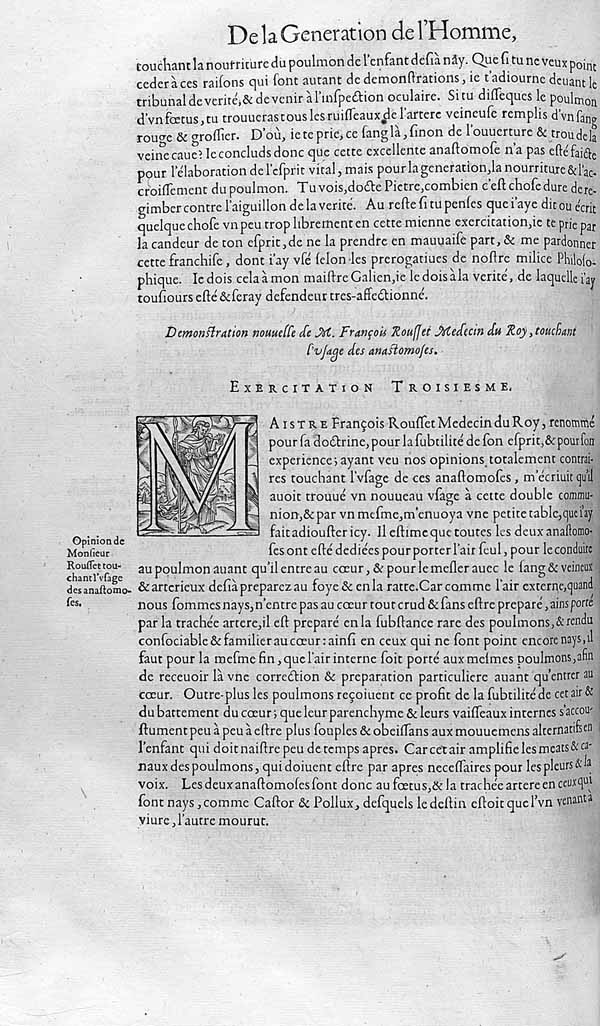 De la Generation de l'Homme,
touchant la nourriture du poulmon de l'enfant desià nây. Que si tu ne veux point
ceder à ces raisons qui sont autant de demonstrations, ie t'adiourne deuant le
tribunal de verité, & de venir à l'inspection oculaire. Si tu disseques le poulmon
d'vn fœtus, tu trouueras tous les ruisseaux de l'artere veineuse remplis d'vn sang
rouge & grossier. D'où, ie te prie, ce sang là, sinon de l'ouuerture & trou de la
veine caue? Ie concluds donc que cette excellente anastomose n'a pas esté faicte
pour l'élaboration de l'esprit vital, mais pour la generation, la nourriture & l'ac-
croissement du poulmon. Tu vois, docte Pietre, combien c'est chose dure de re-
gimber contre l'aiguillon de la verité. Au reste si tu penses que i'aye dit ou écrit
quelque chose vn peu trop librement en cette mienne exercitation, ie te prie par
la candeur de ton esprit, de ne la prendre en mauuaise part, & me pardonner
cette franchise, dont i'ay vsé selon les prerogatiues de nostre milice Philoso-
phique. Ie dois cela à mon maistre Galien, ie le dois à la verité, de laquelle i'ay
tousiours esté & seray defendeur tres-affectionné.
Demonstration nouuelle de M. François Rousset Medecin du Roy, touchant
l'vsage des anastomoses.
EXERCITATION TROISIESME.
MAISTRE François Rousset Medecin du Roy, renommé
pour sa doctrine, pour la subtilité de son esprit, & pour son
experience; ayant veu nos opinions totalement contrai-
res touchant l'vsage de ces anastomoses, m'écriuit qu'il
auoit trouué vn nouueau vsage à cette double commu-
nion, & par vn mesme, m'enuoya vne petite table, que i'ay
fait adiouster icy. Il estime que toutes les deux anastomo-
ses ont esté dediées pour porter l'air seul, pour le conduire
au poulmon auant qu'il entre au cœur, & pour le mesler auec le sang & veineux
& arterieux desià preparez au foye & en la ratte. Car comme l'air externe, quand
nous sommes nays, n'entre pas au cœur tout crud & sans estre preparé, ains porté
par la trachée artere, il est preparé en la substance rare des poulmons, & rendu
consociable & familier au cœur: ainsi en ceux qui ne sont point encore nays, il
faut pour la mesme fin, que l'air interne soit porté aux mesmes poulmons, afin
de receuoir là vne correction & preparation particuliere auant qu'entrer au
cœur. Outre-plus les poulmons reçoiuent ce profit de la subtilité de cet air &
du battement du cœur; que leur parenchyme & leurs vaisseaux internes s'accou-
stument peu à peu à estre plus souples & obeissans aux mouuemens alternatifs en
l'enfant qui doit naistre peu de temps apres. Car cet air amplifie les meats & ca-
naux des poulmons, qui doiuent estre par apres necessaires pour les pleurs & la
voix. Les deux anastomoses sont donc au fœtus, & la trachée artere en ceux qui
sont nays, comme Castor & Pollux, desquels le destin estoit que l'vn venant à
viure, l'autre mourut.
Opinion de
Monsieur
Rousset tou-
chant l'vsage
des anastomo-
ses.